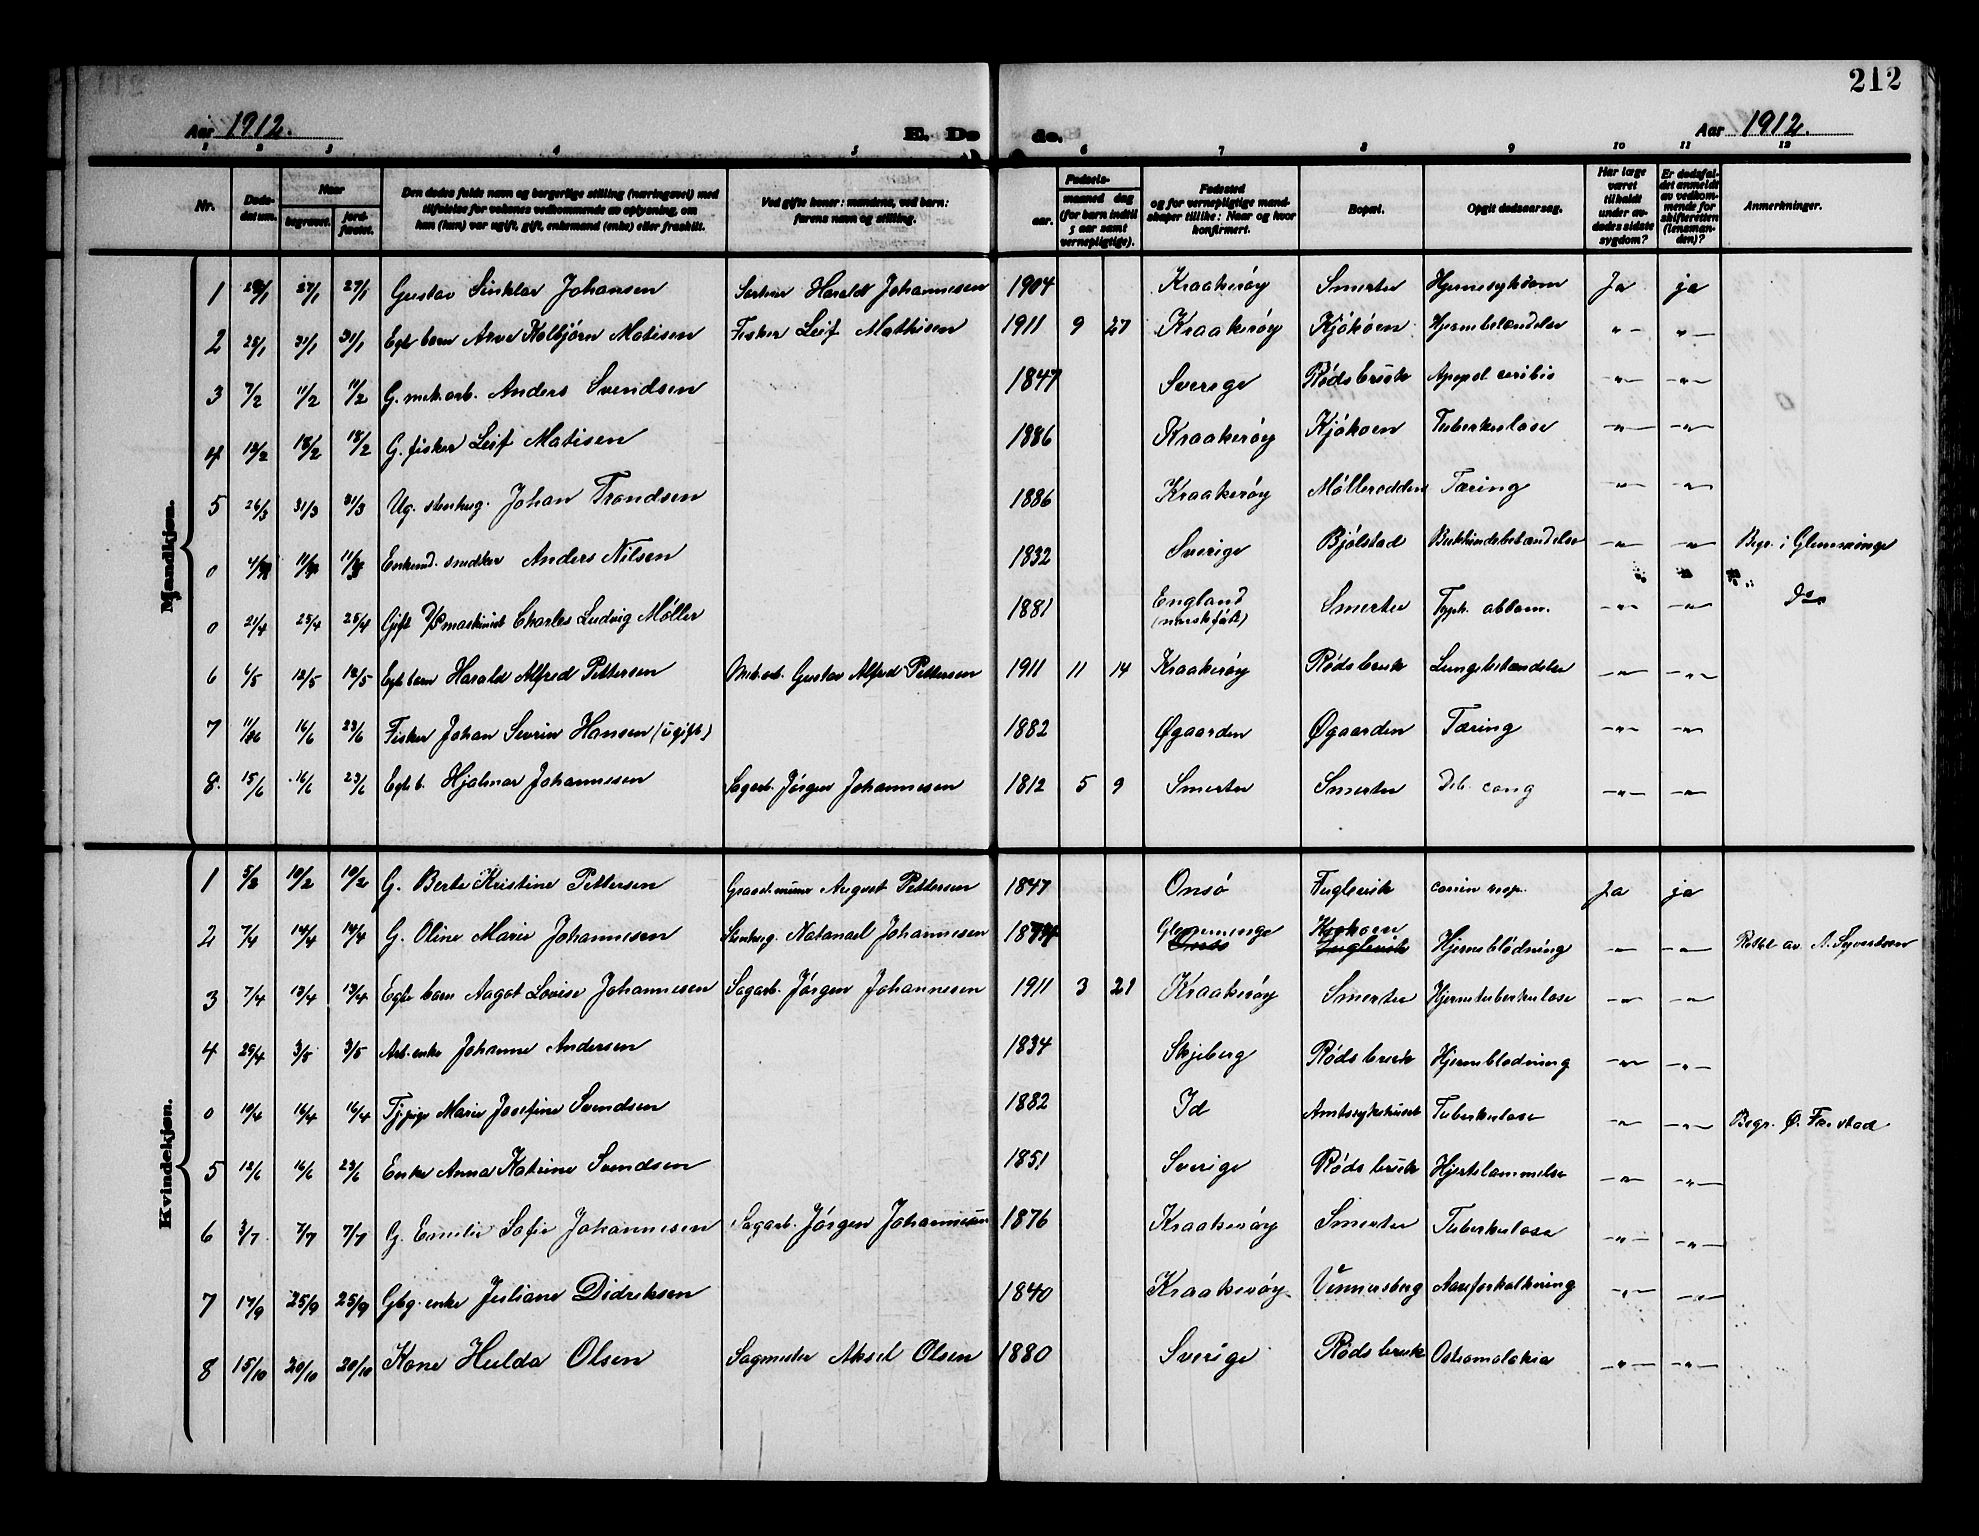 212
Aar 1912. E. Dø de. Aar 1912.
1 2 3 4 5 6 7 8 9 10 11 12
Nr. Døds-datum. Naar begravet. jord-fæstet. Den dødes fulde navn og borgerlige stilling (næringsvei) med tilføielse for voksnes vedkommende av oplysning, om han (hun) var ugift, gift, enkemand (enke) eller fraskilt. Ved gifte koner: mandens, ved barn: farens navn og stilling. Fødsels- aar. maaned dag (for barn indtil 5 aar samt vernepligtige). Fødested og for vernepligtige mandskaper tillike: Naar og hvor konfirmert. Bopæl. Opgit dødsaarsag. Har læge været tilkaldt under avdødes sidste sygdom? Er dødsfaldet anmeldt av vedkommende for skifteretten (lensmanden)? Anmerkninger.
Mandkjøn.
1 27/1 27/1 Gustav Sinklar Johansen Harald Johannesen 1904 Kraakerøy Smertu Hjernesykdom Ja ja
2 28/1 31/1 31/1 Egte barn Arve Kolbjørn Matisen Fisker Leif Mathisen 1911 9 27 Kraakerøy Kjøkøen Hjernebetændelse -"- -"-
3 7/2 11/2 11/2 G. mek. arb. Anders Svendsen 1847 Sverige Rødsbruk Apopol ceribis -"- -"-
4 12/2 18/2 18/2 G. fisker Leif Matisen 1886 Kraakerøy Kjøkøen Tuberkulose -"- -"-
5 26/3 31/3 31/3 Ug. stenhug. Johan Trondsen 1886 Kraakerøy Møllerodden Tæring -"- -"-
0 Enkemd. snedker Anders Nilsen 1832 Sverige Bjølstad Bukhindebetændelse -"- -"- Begr. i Glemminge
0 21/4 25/4 25/4 Gift D/S maskinist Charles Ludvig Møller 1881 England (norskfødt) Smertu Typh. abdom. -"- -"- Do
6 6/5 12/5 12/5 Egte barn Harald Alfred Pettersen Mek. arb. Gustav Alfred Pettersen 1911 11 14 Kraakerøy Rødsbruk Lungebetændelse -"- -"-
7 11/6 16/6 23/6 Fisker Johan Sevrin Hansen (ugift) 1882 Øgaarden Øgaarden Tæring -"- -"-
8. 15/6 16/6 23/6 Egte b. Hjalmar Johannesen Sagarb. Jørgen Johannesen 1812 5 9 Smertu Smertu Deb. cong -"- -"-
Kvindekjøn.
1 5/2 10/2 10/2 G. Berte Kristine Pettersen August Pettersen 1847 Onsø Fuglevik Ja ja
2 7/4 14/4 14/4 G. Oline Marie Johannesen Stenhug. Natanael Johannesen Glemminge Onsø Kjøkøen Fuglevik Hjerneblødning -"- -"- Rettet av A. Syversen
3 7/4 13/4 13/4 Egte barn Aagot Lovise Johannesen Sagarb. Jørgen Johannesen 1911 3 21 Kraakerøy Smertu Hjernetuberkulose -"- -"-
4 29/4 3/5 3/5 Arb. enke Johanne Andersen 1834 Skjeberg Rødsbruk Hjerneblødning -"- -"-
0 10/4 16/4 16/4 Tj.pige Marie Josefine Svendsen 1882 Id Amtssykehuset Tuberkulose -"- -"- Begr. Ø. Farstad
5 12/6 16/6 23/6 Enke Anna Katrine Svendsen 1851 Sverige Rødsbruk Hjertelammelse -"- -"-
6 3/7 7/7 7/7 G. Emilie Sofie Johannesen Sagarb. Jørgen Johannesen 1876 Kraakerøy Smertu Tuberkulose -"- -"-
7 17/9 25/9 25/9 Gbg. enke Juliane Didriksen 1840 Kraakerøy Vennersberg Aareforkalkning -"- -"-
8 15/10 20/10 20/10 Kone Hulda Olsen Sagmester Aksel Olsen 1880 Sverige Rødsbruk Osteomalakia -"- -"-